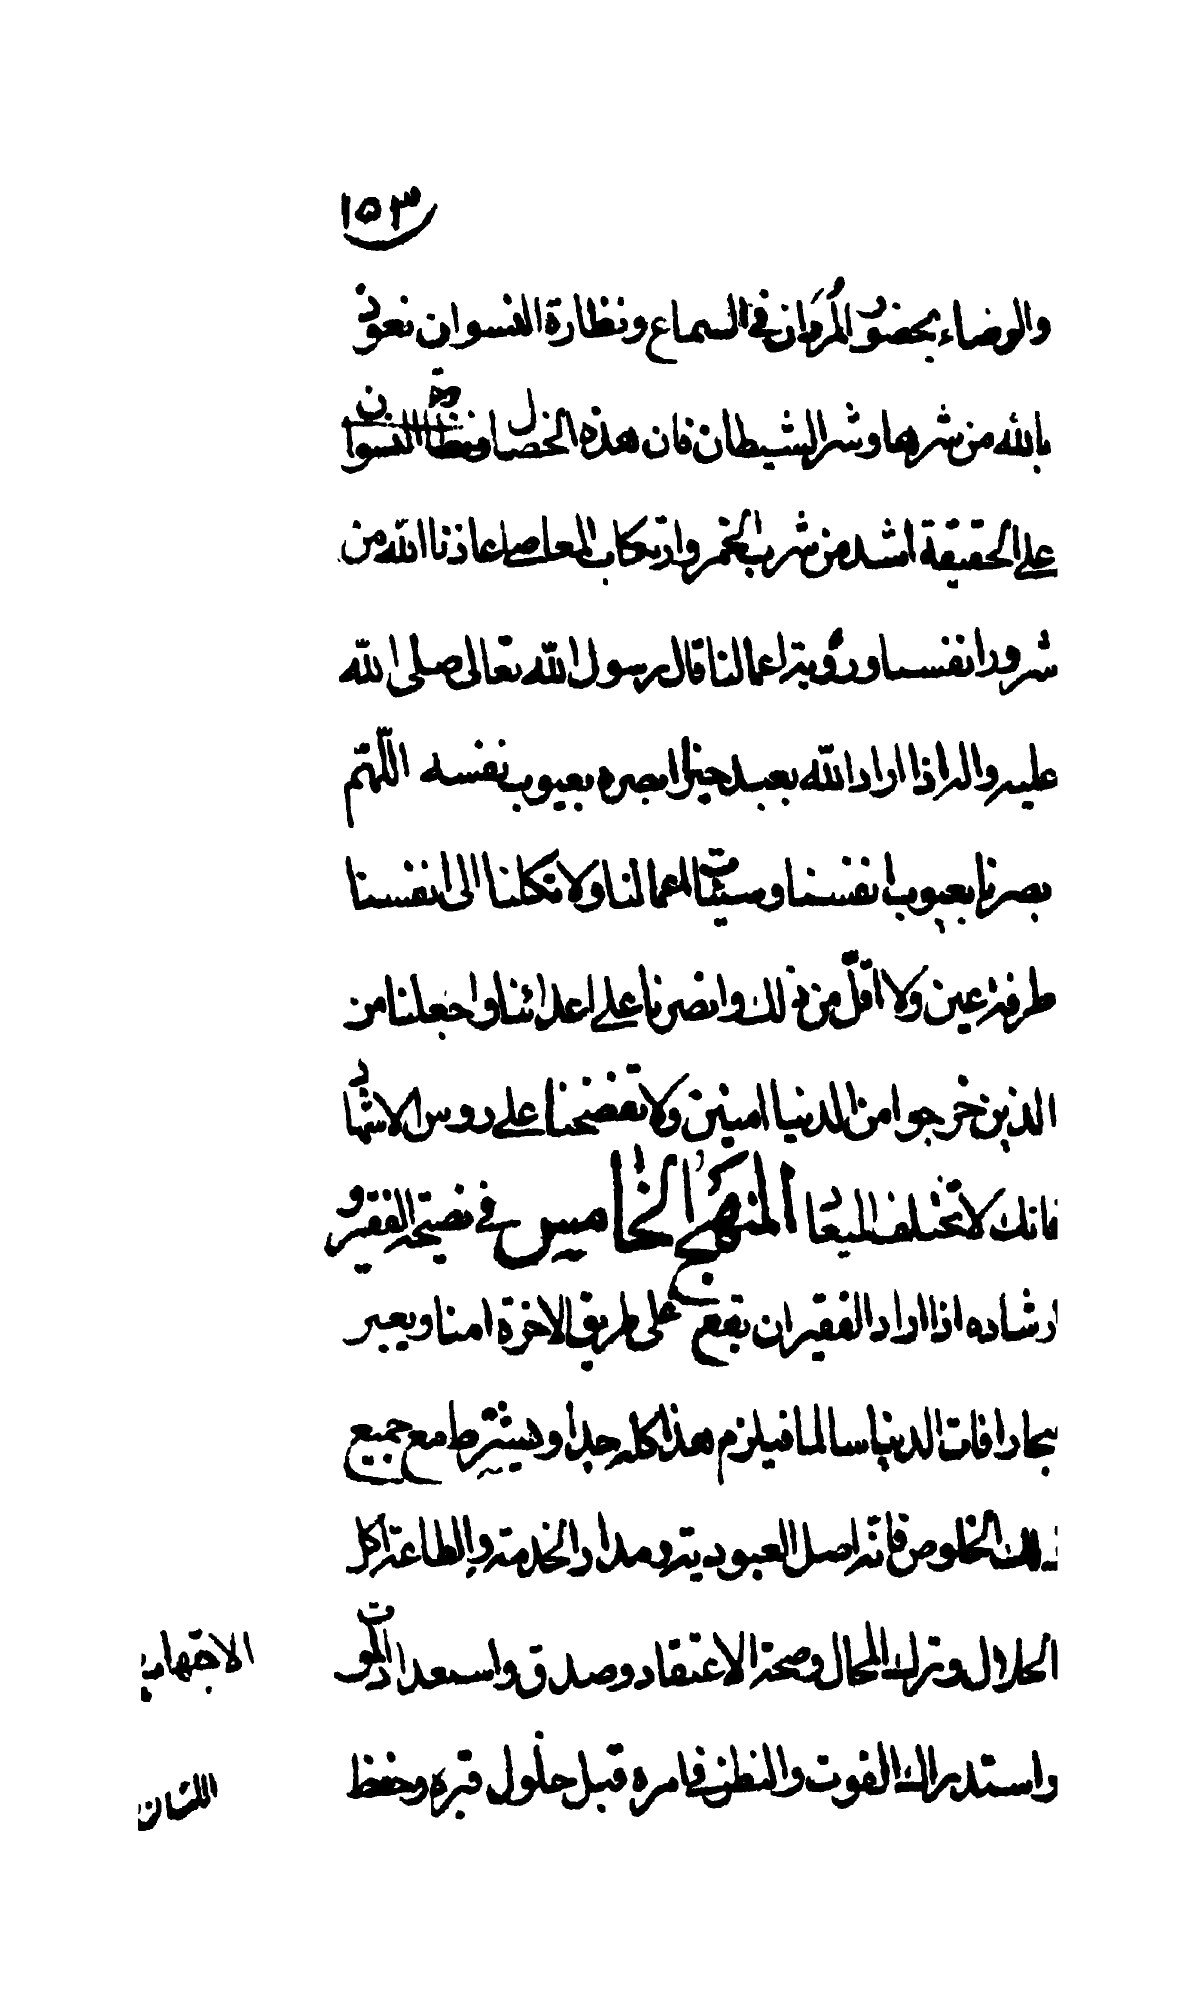 ١٥٣
والرضاء بحضور المُردان في السماع ونظارة النسوان نعوذ
بالله من شرها وشر الشيطان فان هذه الخصال ونظارة النسوان
على الحقيقة اشد من شرب الخمر وارتكاب المعاصى اعاذنا الله من
شرور انفسنا ورؤية اعمالنا قال رسول الله تعالى صلى الله
عليه واله اذا اراد الله بعبد خيرا ابصره بعيوب نفسه اللّهم
بصرنا بعيوب انفسنا وسيئات اعمالنا ولا تكلنا الى انفسنا
طرفة عين ولا اقلّ من ذلك وانصرنا على اعدائنا واجعلنا من
الذين خرجوا من الدنيا امنين ولا تفضحنا على روس الاشهاد
فانك لا تخلف الميعاد المنهج الخامس في نصيحة الفقير و
ارشاده اذا اراد الفقير ان يقع على طريق الاخرة امنا ويعبر
بحار افات الدنيا سالما فيلزم هذا كله جدا ويشترط مع جميع
ذلك الخلوص فانه اصل العبودية ومدار الخدمة والطاعة اكل
الحلال وترك المحال وصحة الاعتقاد وصدق واستعداد الموت
واستدراك الفوت والنظر في امره قبل حلول قبره وحفظ
اللسان